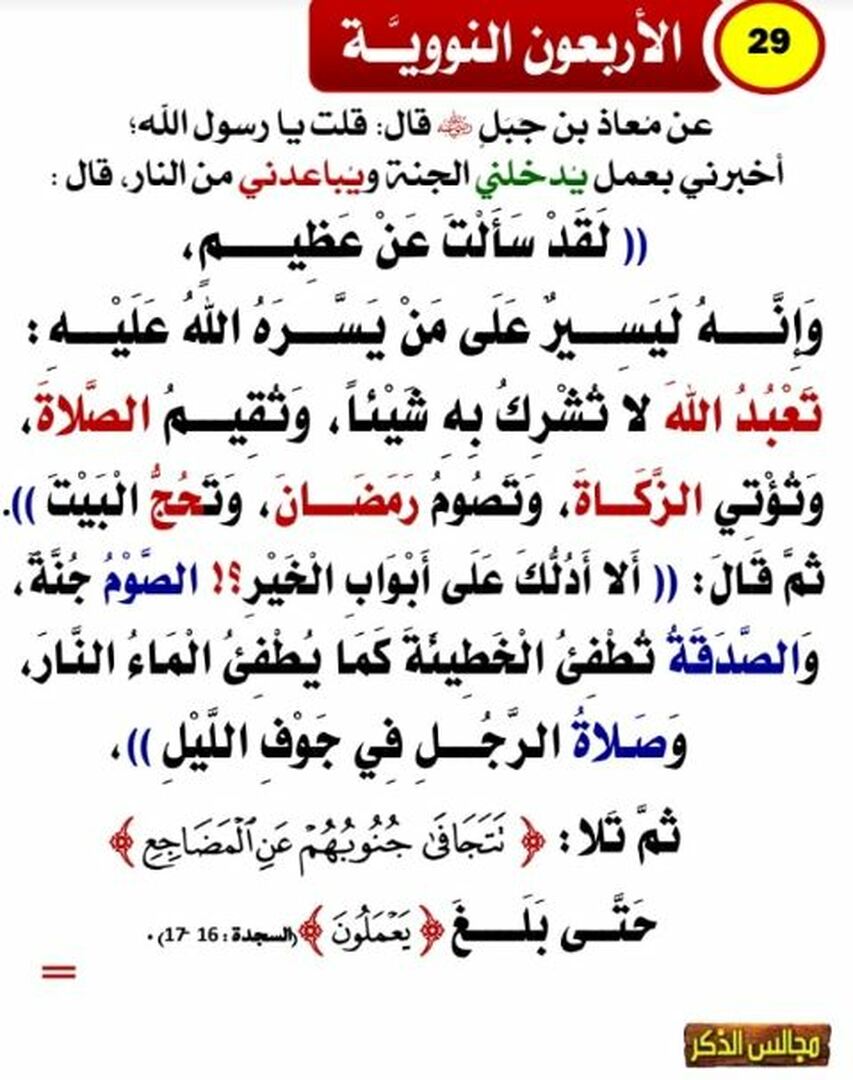 29
الأربعون النوويَّة
عن مُعاذ بن جبَلٍ ﵁ قال: قلت يا رسول الله؛
أخبرني بعمل يُدخلني الجنة ويُباعدني من النار، قال :
(( لَقَدْ سَأَلْتَ عَنْ عَظِيـــمٍ،
وَإِنَّـــهُ لَيَسِـيرٌ عَلَى مَنْ يَسَّـرَهُ اللهُ عَلَيْـهِ :
تَعْبُدُ اللهَ لا تُشْرِكُ بِهِ شَيْئاً، وَتُقِيـمُ الصَّلاةَ،
وَتُؤْتِي الزَّكَـاةَ، وَتَصُومُ رَمَضَـانَ، وَتَحُجُّ الْبَيْتَ )).
ثمَّ قَالَ: (( أَلا أَدُلُّكَ عَلَى أَبْوَابِ الْخَيْرِ؟! الصَّوْمُ جُنَّةٌ،
وَالصَّدَقَةُ تُطْفِئُ الْخَطِيئَةَ كَمَا يُطْفِئُ الْمَاءُ النَّارَ،
وَصَلاةُ الرَّجُـلِ فِي جَوْفِ اللَّيْلِ ))،
ثمَّ تَلا: ﴿ تَتَجَافَىٰ جُنُوبُهُمْ عَنِ ٱلْمَضَاجِعِ ﴾
حَتَّـى بَلَـغَ ﴿ يَعْمَلُونَ ﴾ (السجدة : 16 -17) .
=
مجالس الذكر